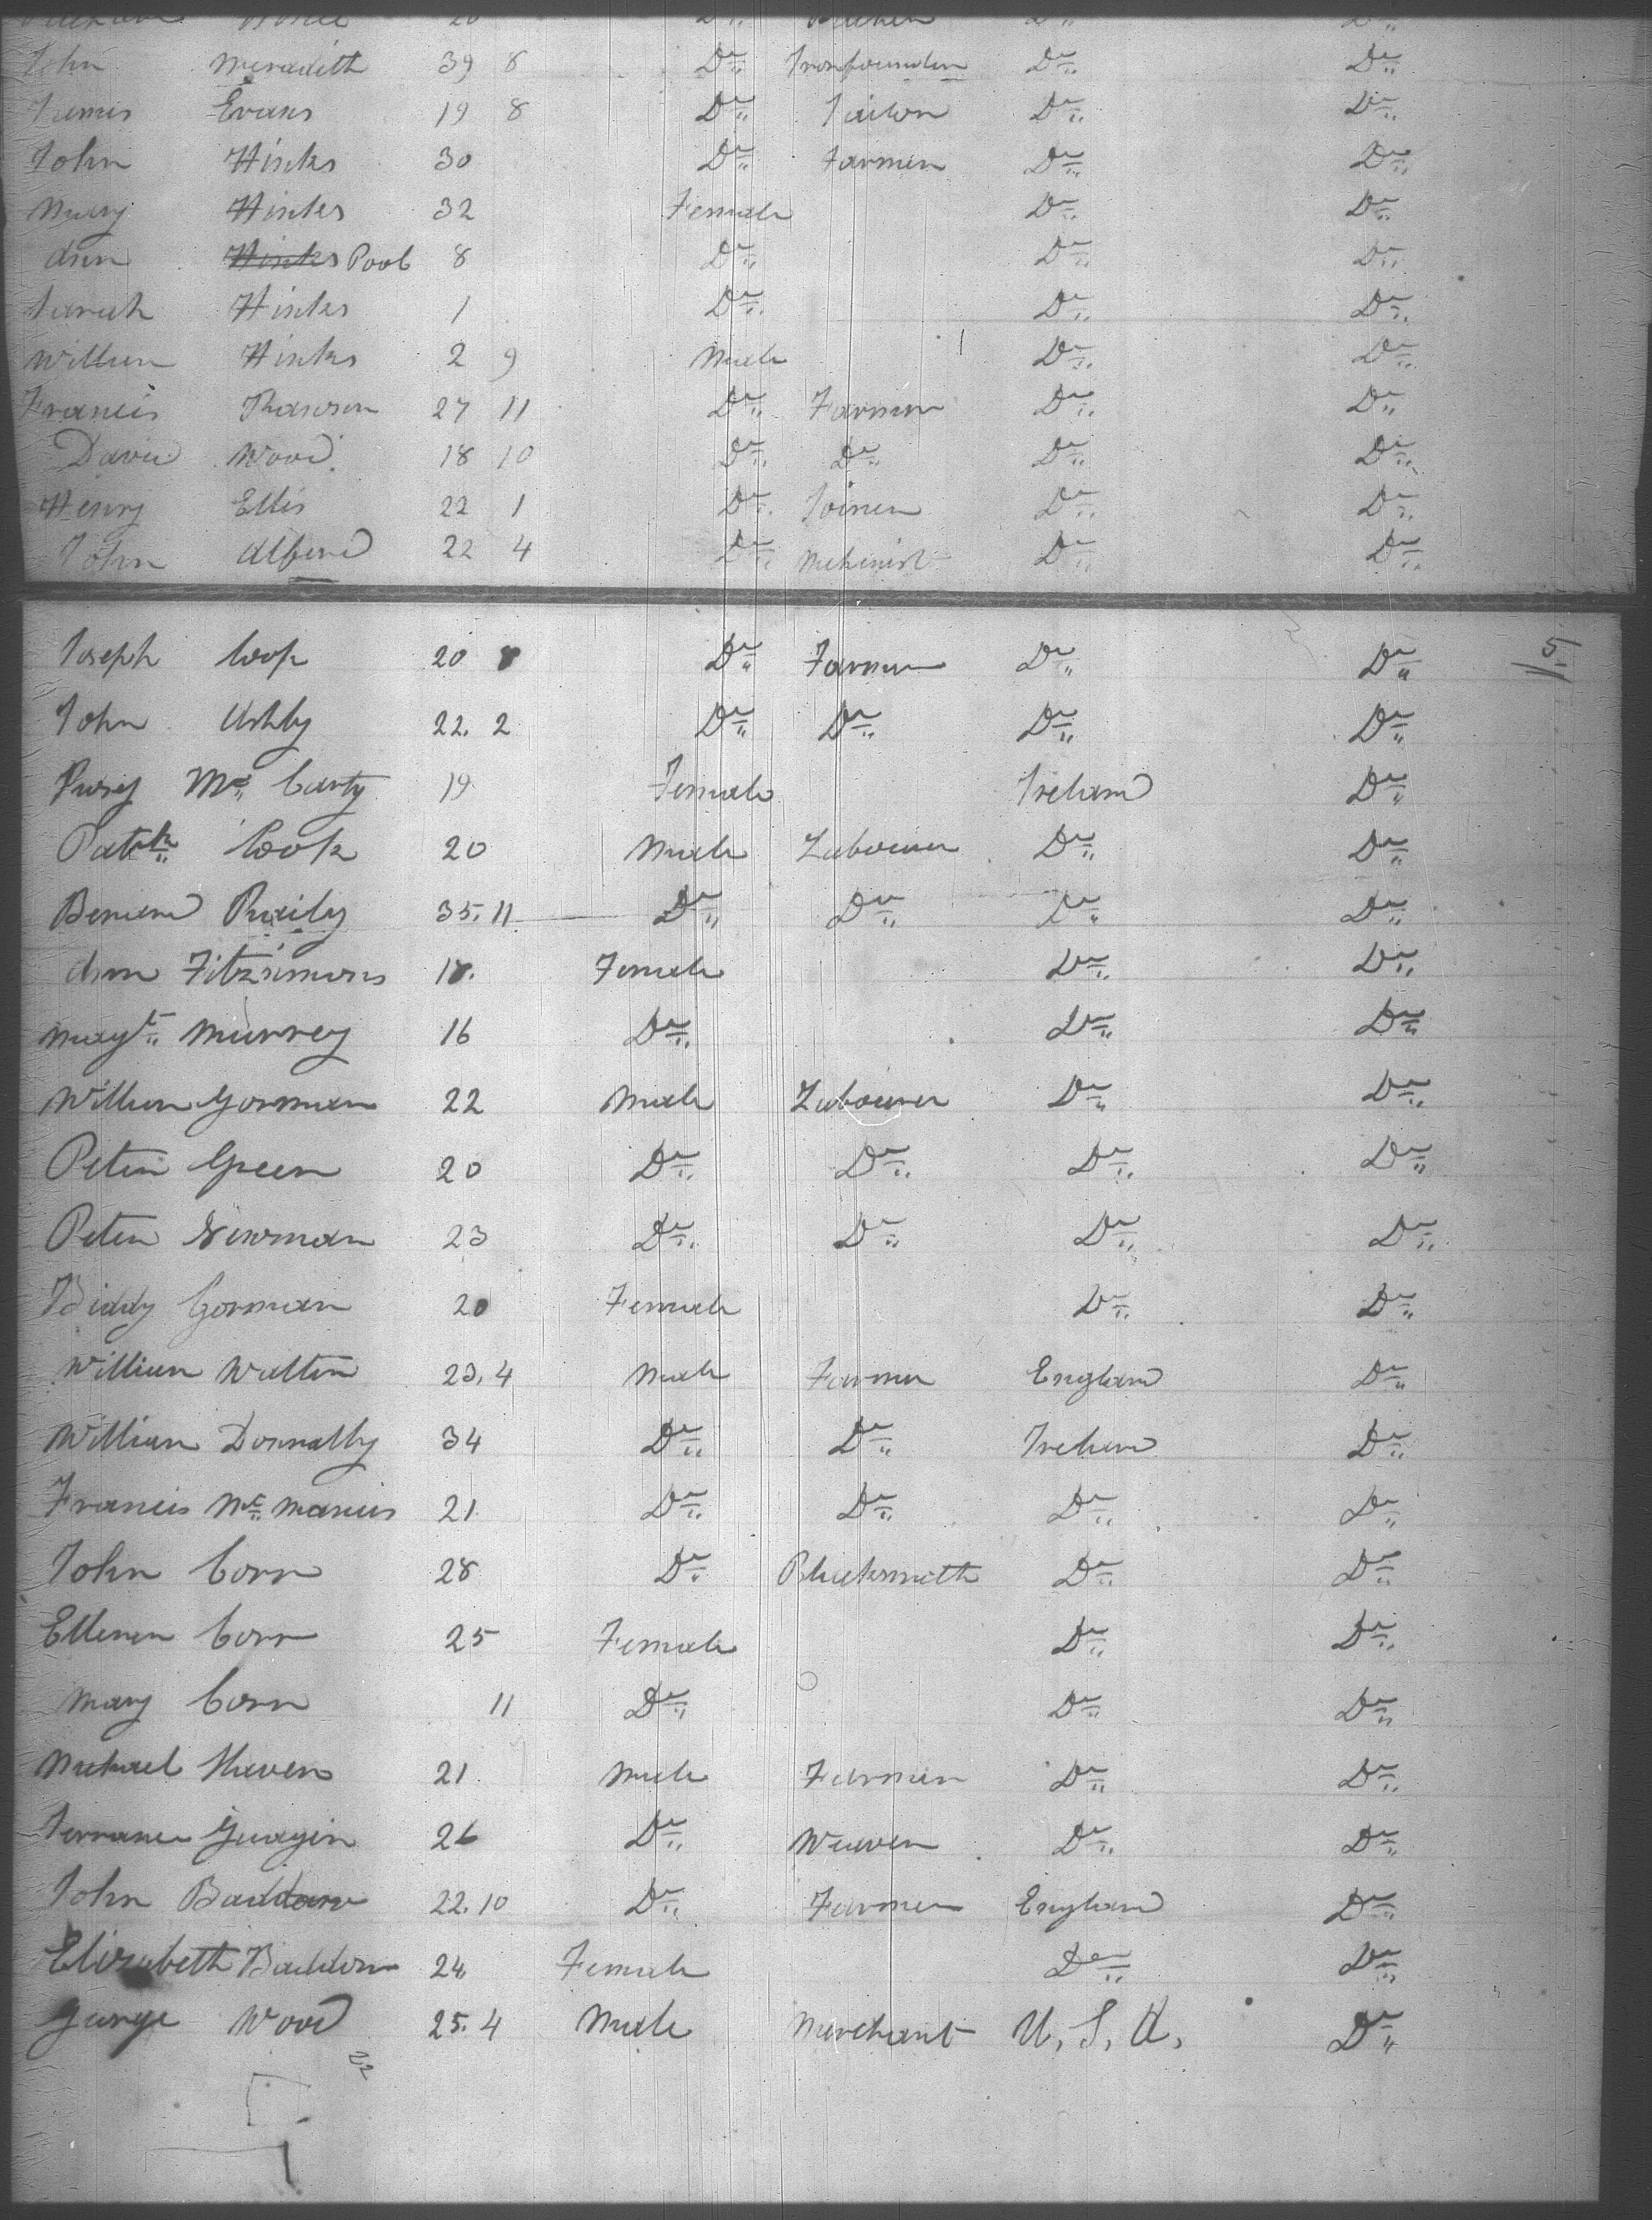 John Meradith 39 8 Do Ironfounder Do Do
James Evans 19 8 Do Tailor Do Do
John Hinks 30 Do Farmer Do Do
Mary Hinks 32 Female Do Do
Ann Hinks Pool 8 Do Do Do
Sarah Hinks 1 Do Do Do
William Hinks 2 9 Male Do Do
Francis Rawson 27 11 Do Farmer Do Do
David Wood 18 10 Do Do Do Do
Henry Ellis 22 1 Do Joiner Do Do
John Alford 22 4 Do Mechinist Do Do
5
Joseph 20 Do Farmer Do Do
John Ashby 22. 2 Do Do Do Do
Mc Carty 19 Female Ireland Do
Patk Cook 20 Male Labourer Do Do
Bernard Raily 35. 11 Do Do Do Do
Ann Fitzsimons Female Do Do
Magt Murrey 16 Do Do Do
William Gorman 22 Male Labourer Do Do
Peter Green 20 Do Do Do Do
Peter Newman 23 Do Do Do Do
Biddy Gorman 20 Female Do Do
William Walton 23. 4 Male Farmer England Do
William Donnally 34 Do Do Ireland Do
Francis Mc Manus 21 Do Do Do Do
John Corr 28 Do Blacksmith Do Do
Ellenen Corr 25 Female Do Do
Mary Corr 11 Do Do Do
Michael Haven 21 Male Farmer Do Do
Terrance 26 Do Weaver Do Do
John Baddow 22. 10 Do Farmer England Do
Elizabeth Baddow 24 Female Do Do
George Wood 25. 4 Male Merchant U. S. A. Do
22